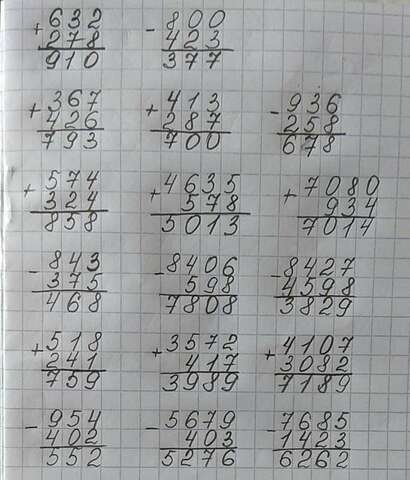 +632 -800
278 423
910 377
+367 +413 -936
426 287 258
793 700 678
+574 +4635 +7080
324 578 934
858 5013 7014
-843 -8406 -8427
375 598 4598
468 7808 3829
+518 +3572 +4107
241 417 3082
759 3989 7189
-954 -5679 -7685
402 403 1423
552 5276 6262